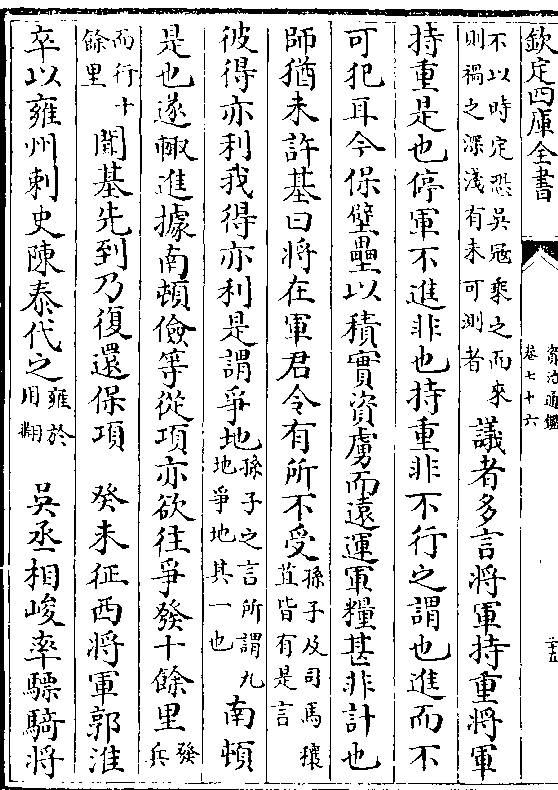 欽定四庫全書
資治通鑑
卷七十六
二十五
不以時定恐吳寇乘之而來
則禍之深淺有未可測者
議者多言將軍持重將軍
持重是也停軍不進非也持重非不行之謂也進而不
可犯耳今保壁壘以積實資虜而遠運軍糧甚非計也
師猶未許基曰將在軍君令有所不受
孫子及司馬穰
苴皆有是言
彼得亦利我得亦利是謂爭地
孫子之言所謂九
地爭地其一也
南頓
是也遂輒進據南頓儉等從項亦欲往爭發十餘里
發
兵
而行十
餘里
聞基先到乃復還保項
癸未征西將軍郭淮
卒以雍州刺史陳泰代之
雍於
用翻
吳丞相峻率驃騎將